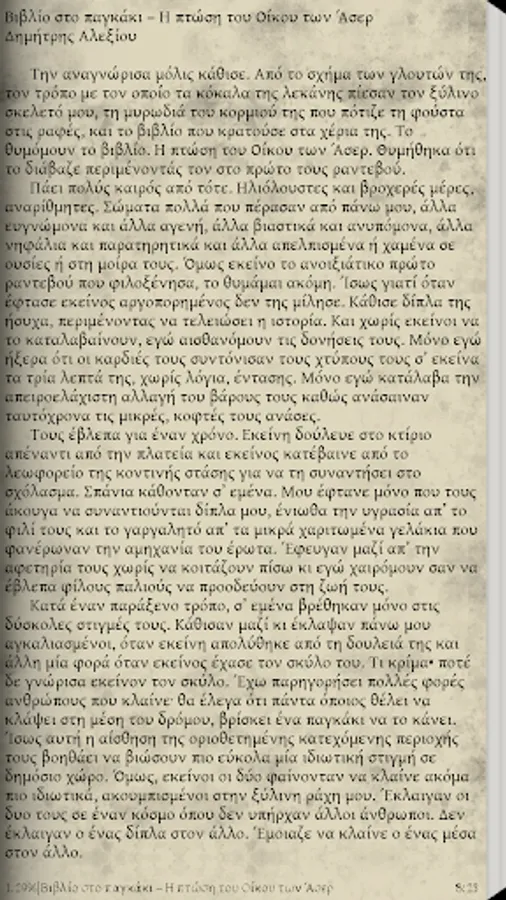 Βιβλίο στο παγκάκι – Η πτώση του Οίκου των Άσερ
Δημήτρης Αλεξίου
Την αναγνώρισα μόλις κάθισε. Από το σχήμα των γλουτών της,
τον τρόπο με τον οποίο τα κόκαλα της λεκάνης πίεσαν τον ξύλινο
σκελετό μου, τη μυρωδιά του κορμιού της που πότιζε τη φούστα
στις ραφές, και το βιβλίο που κρατούσε στα χέρια της. Το
θυμόμουν το βιβλίο. Η πτώση του Οίκου των Άσερ. Θυμήθηκα ότι
το διάβαζε περιμένοντάς τον στο πρώτο τους ραντεβού.
Πάει πολύς καιρός από τότε. Ηλιόλουστες και βροχερές μέρες,
αναρίθμητες. Σώματα πολλά που πέρασαν από πάνω μου, άλλα
ευγνώμονα και άλλα αγενή, άλλα βιαστικά και ανυπόμονα, άλλα
νηφάλια και παρατηρητικά και άλλα απελπισμένα ή χαμένα σε
ουσίες ή στη μοίρα τους. Όμως εκείνο το ανοιξιάτικο πρώτο
ραντεβού που φιλοξένησα, το θυμάμαι ακόμη. Ίσως γιατί όταν
έφτασε εκείνος αργοπορημένος δεν της μίλησε. Κάθισε δίπλα της
ήσυχα, περιμένοντας να τελειώσει η ιστορία. Και χωρίς εκείνοι να
το καταλαβαίνουν, εγώ αισθανόμουν τις δονήσεις τους. Μόνο εγώ
ήξερα ότι οι καρδιές τους συντόνισαν τους χτύπους τους σ' εκείνα
τα τρία λεπτά της, χωρίς λόγια, έντασης. Μόνο εγώ κατάλαβα την
απειροελάχιστη αλλαγή του βάρους τους καθώς ανάσαιναν
ταυτόχρονα τις μικρές, κοφτές τους ανάσες.
Τους έβλεπα για έναν χρόνο. Εκείνη δούλευε στο κτίριο
απέναντι από την πλατεία και εκείνος κατέβαινε από το
λεωφορείο της κοντινής στάσης για να τη συναντήσει στο
σχόλασμα. Σπάνια κάθονταν σ' εμένα. Μου έφτανε μόνο που τους
άκουγα να συναντιούνται δίπλα μου, ένιωθα την υγρασία απ' το
φιλί τους και το γαργαλητό απ' τα μικρά χαριτωμένα γελάκια που
φανέρωναν την αμηχανία του έρωτα. Έφευγαν μαζί απ' την
αφετηρία τους χωρίς να κοιτάζουν πίσω κι εγώ χαιρόμουν σαν να
έβλεπα φίλους παλιούς να προοδεύουν στη ζωή τους.
Κατά έναν παράξενο τρόπο, σ' εμένα βρέθηκαν μόνο στις
δύσκολες στιγμές τους. Κάθισαν μαζί κι έκλαψαν πάνω μου
αγκαλιασμένοι, όταν εκείνη απολύθηκε από τη δουλειά της και
άλλη μία φορά όταν εκείνος έχασε τον σκύλο του. Τι κρίμα• ποτέ
δε γνώρισα εκείνον τον σκύλο. Έχω παρηγορήσει πολλές φορές
ανθρώπους που κλαίνε· θα έλεγα ότι πάντα όποιος θέλει να
κλάψει στη μέση του δρόμου, βρίσκει ένα παγκάκι να το κάνει.
Ίσως αυτή η αίσθηση της οριοθετημένης κατεχόμενης περιοχής
τους βοηθάει να βιώσουν πιο εύκολα μία ιδιωτική στιγμή σε
δημόσιο χώρο. Όμως, εκείνοι οι δύο φαίνονταν να κλαίνε ακόμα
πιο ιδιωτικά, ακουμπισμένοι στην ξύλινη ράχη μου. Έκλαιγαν οι
δυο τους σε έναν κόσμο όπου δεν υπήρχαν άλλοι άνθρωποι. Δεν
έκλαιγαν ο ένας δίπλα στον άλλο. Έμοιαζε να κλαίνε ο ένας μέσα
στον άλλο.
1.29%|Βιβλίο στο παγκάκι – Η πτώση του Οίκου των Άσερ